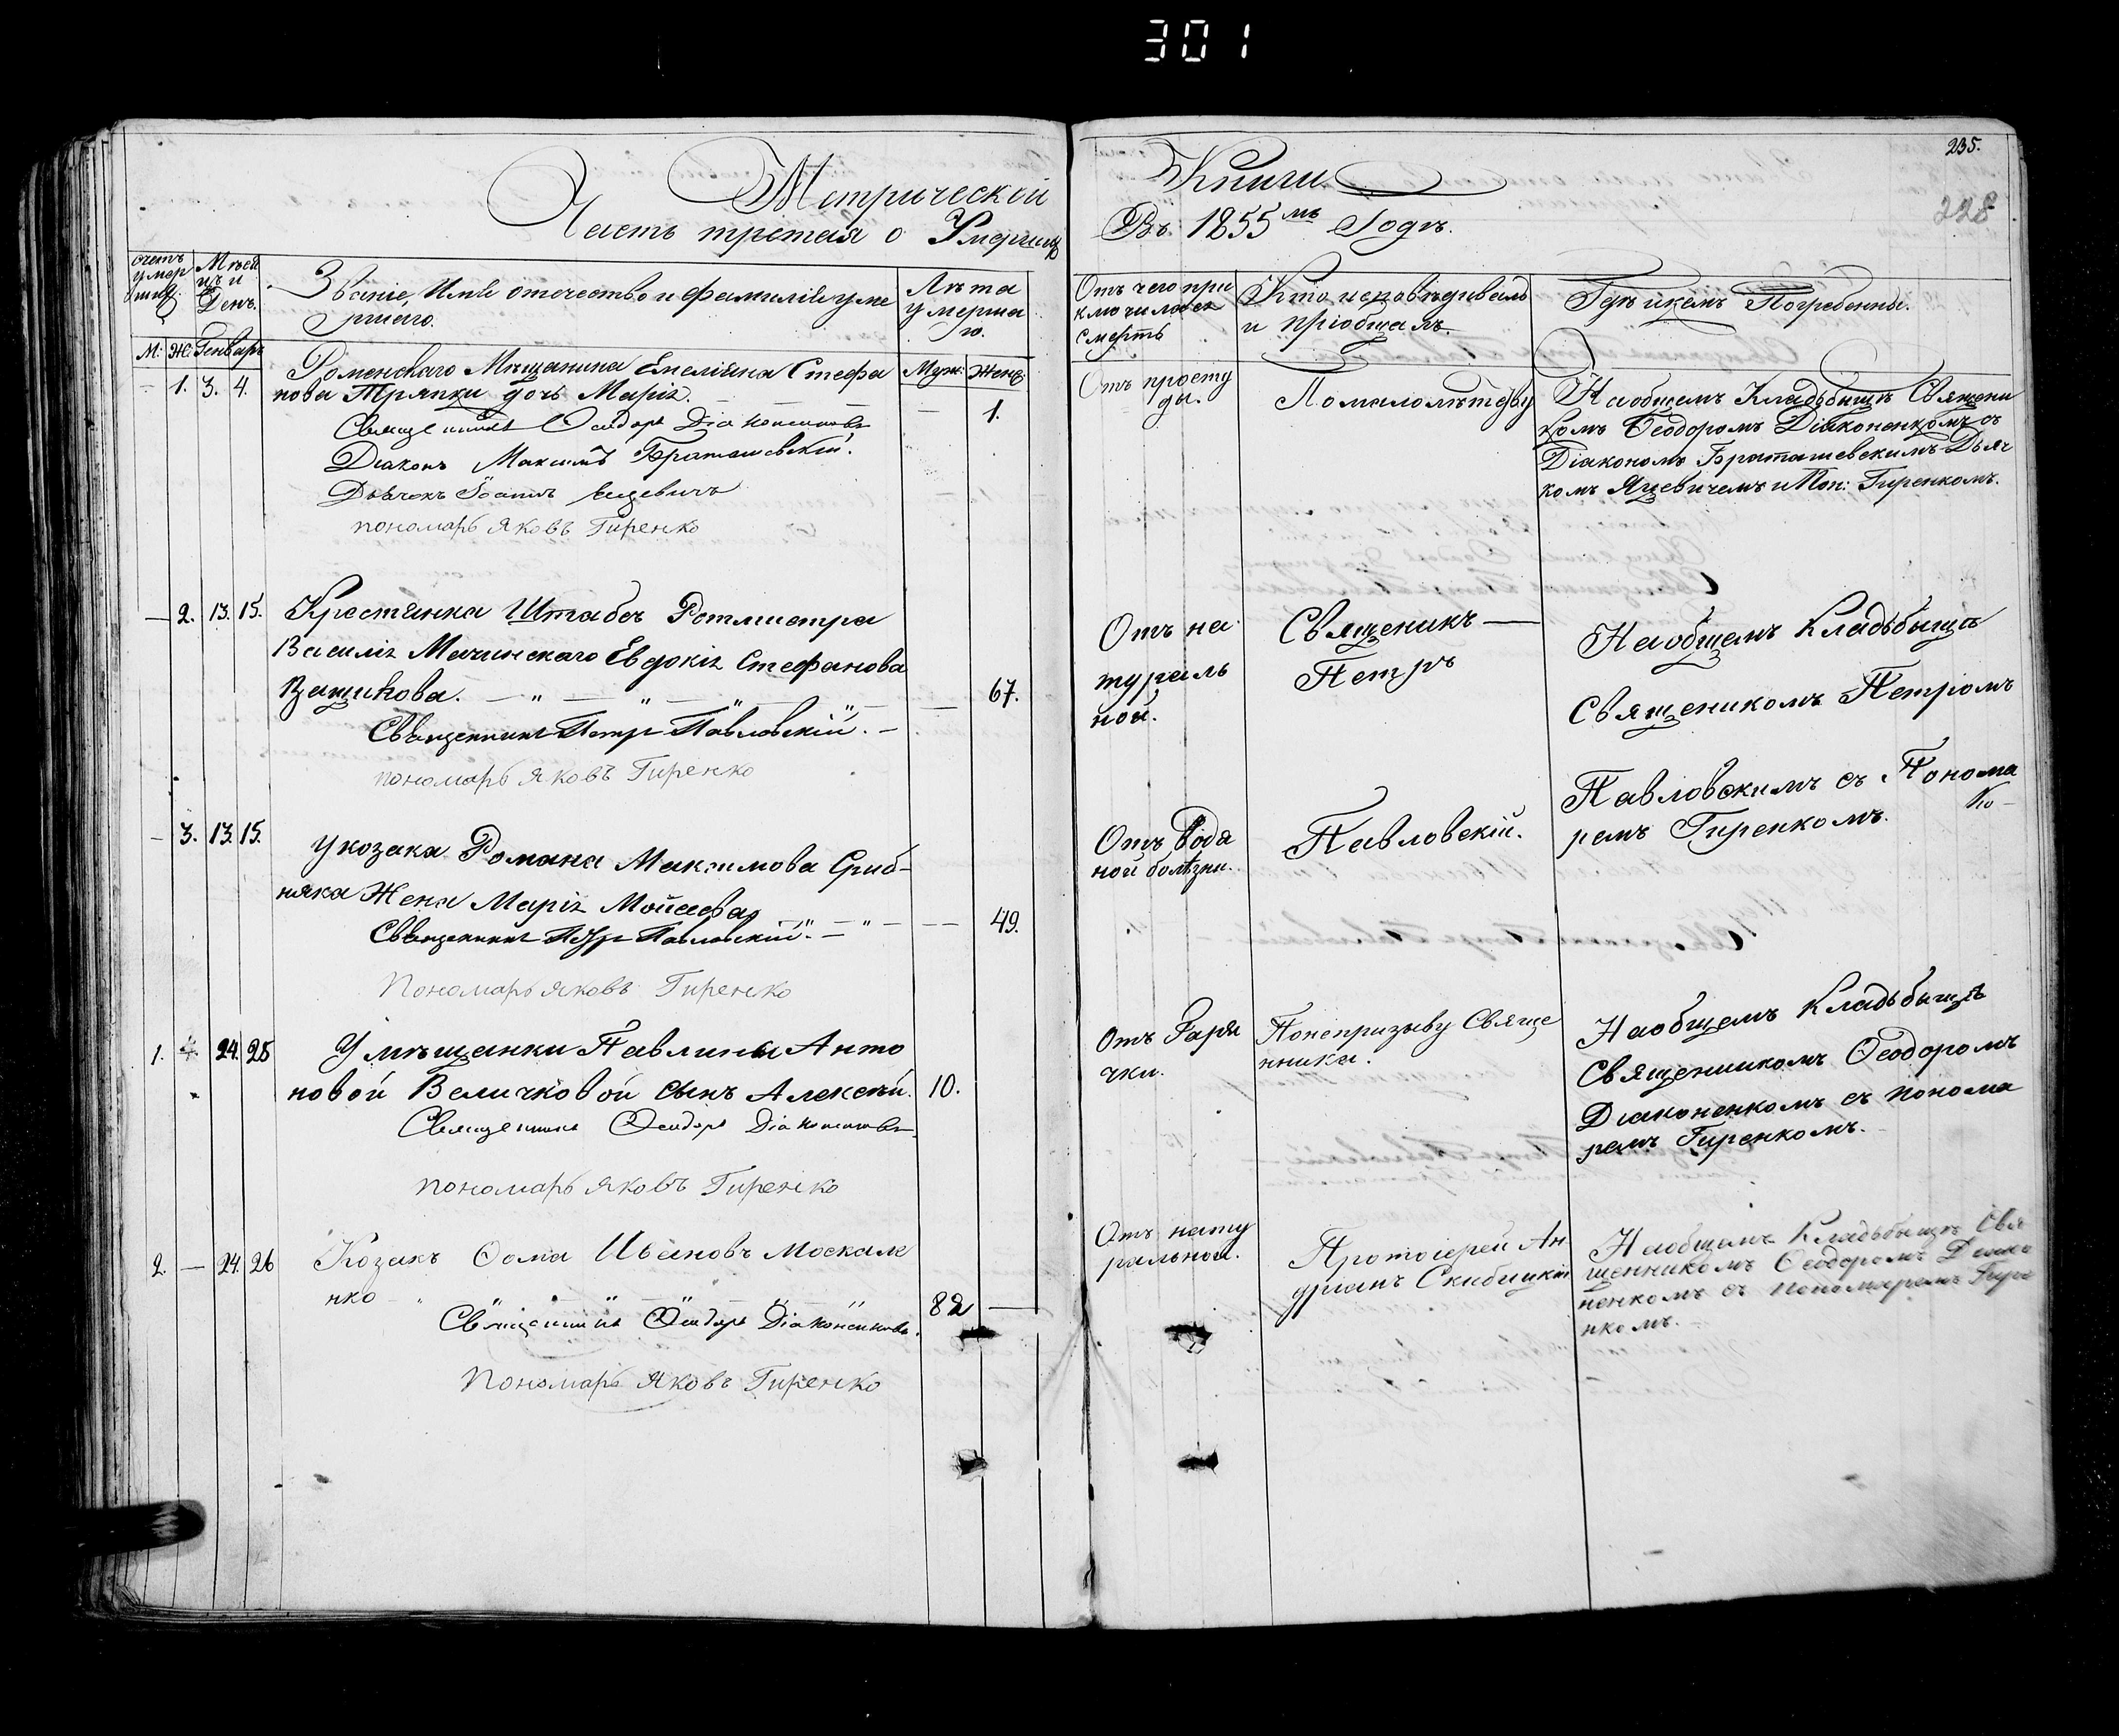 301
Метрической
Часть третая о Умершихъ
Книги
Въ 1855мъ Годѣ.
235.
228
счетъ
умер
шихъ.
Мѣсяцъ и
День.
Званіе, Имѣ отечество и фамиліи уме
ршаго.
Лѣта
умерша
го.
М:
Ж:
Генварь
Муж:
Женс:
Отъ чего при
ключилось
смерть
Кто исповѣдивалъ
и пріобщалъ.
Гдѣ и кемъ Погребенны.
1. 3. 4.
Роменскаго Мѣщанина Емеліяна Стефа
нова Тряпки дочь Марія.
1.
Священникъ Феодоръ Діаконенковъ
Діаконъ Максимъ Браташевскій.
Дьячокъ Яцевичъ
пономарь Яковъ Гиренко
Отъ просту
ды.
По малолѣтству
На общемъ Кладьбищѣ Священи
комъ Ѳеодоромъ Діаконенкомъ съ
Діакономъ Браташевскимъ Дьяч
комъ Яцевичемъ и Поп: Гиренкомъ.
— 2. 13. 15.
Крестянка Штабсъ Ротмистра
Василія Мачинскаго Евдокія Стефанова
Ващикова.
67.
Священникъ Петръ Павловскій.
пономарь Яковъ Гиренко
Отъ на
тураль
ной.
Священикъ —
Петръ
Павловскій.
На общемъ Кладьбыщѣ
Священикомъ Петромъ
Павловскимъ съ Понома
ремъ Гиренкомъ.
— 3. 13 15.
У козака Романа Максимова Гриб-
няка Жена Марія Моисева
49.
Священникъ Петръ Павловскій.
Пономарь Яковъ Гиренко
Отъ Водя
ной болѣзни.
1. 24. 25
У мѣщанки Павлины Анто
новой Величковой сынъ Алексѣй.
10.
Священникъ Феодоръ Діаконенковъ
пономарь Яковъ Гиренко
Отъ Гаря
чки.
По непризыву Свяще
нника.
На общемъ Кладьбыщѣ
Священникомъ Ѳеодоромъ
Діаконенкомъ съ понома
ремъ Гиренкомъ.
2. — 24. 26
Козакъ Ѳома Ивановъ Москале
нко
82
Священникъ Феодоръ Діаконенковъ.
Пономарь Яковъ Гиренко
Отъ нату
ральной.
Протоіерей Ан
дріанъ Скибицкій
На общемъ Кладьбыщѣ Свя
щенникомъ Ѳеодоромъ Діако
ненкомъ съ пономаремъ Гире
нкомъ.